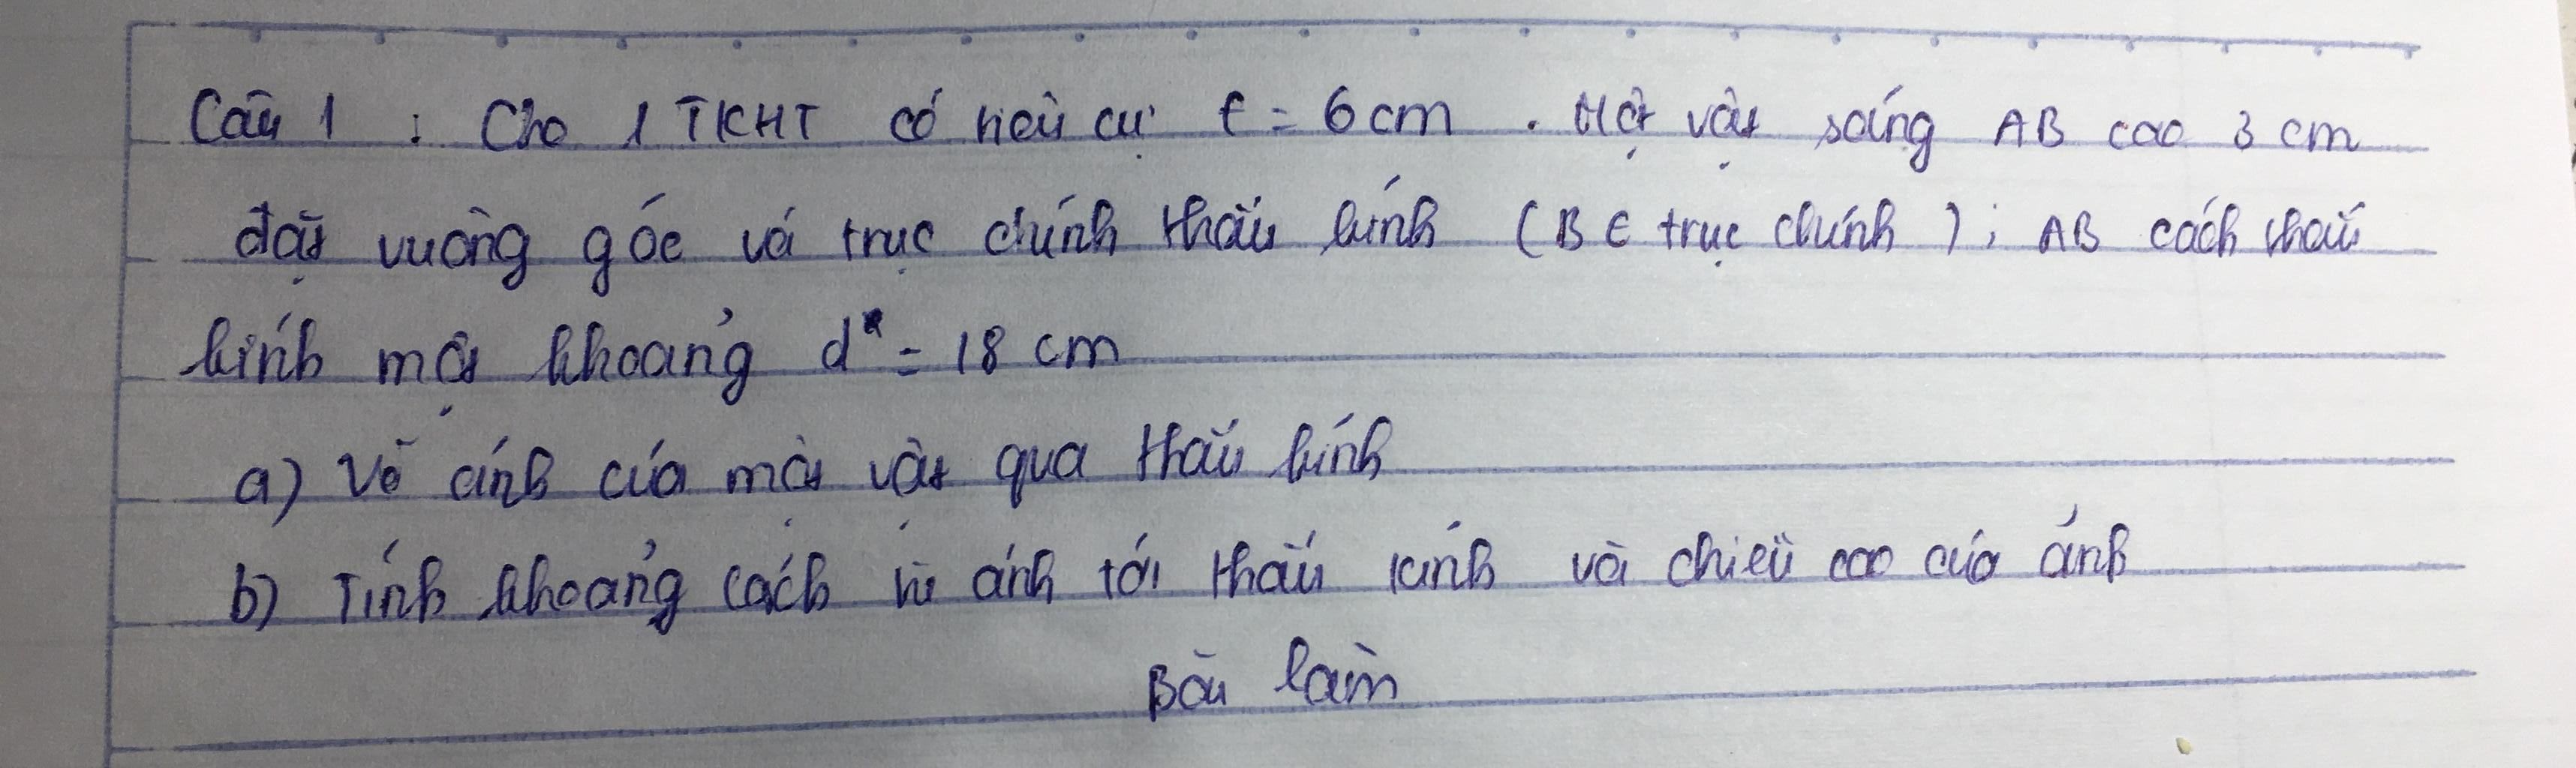 Câu 1 : Cho 1 TKHT có tiêu cự f = 6 cm . Một vật sáng AB cao 3 cm
đặt vuông góc vá trục chính thấu kính ( B ∈ trục chính ) ; AB cách thấu
kính một khoảng d = 18 cm
a) Vẽ ảnh của một vật qua thấu kính
b) Tính khoảng cách từ ảnh tới thấu kính và chiều cao của ảnh
Bài làm